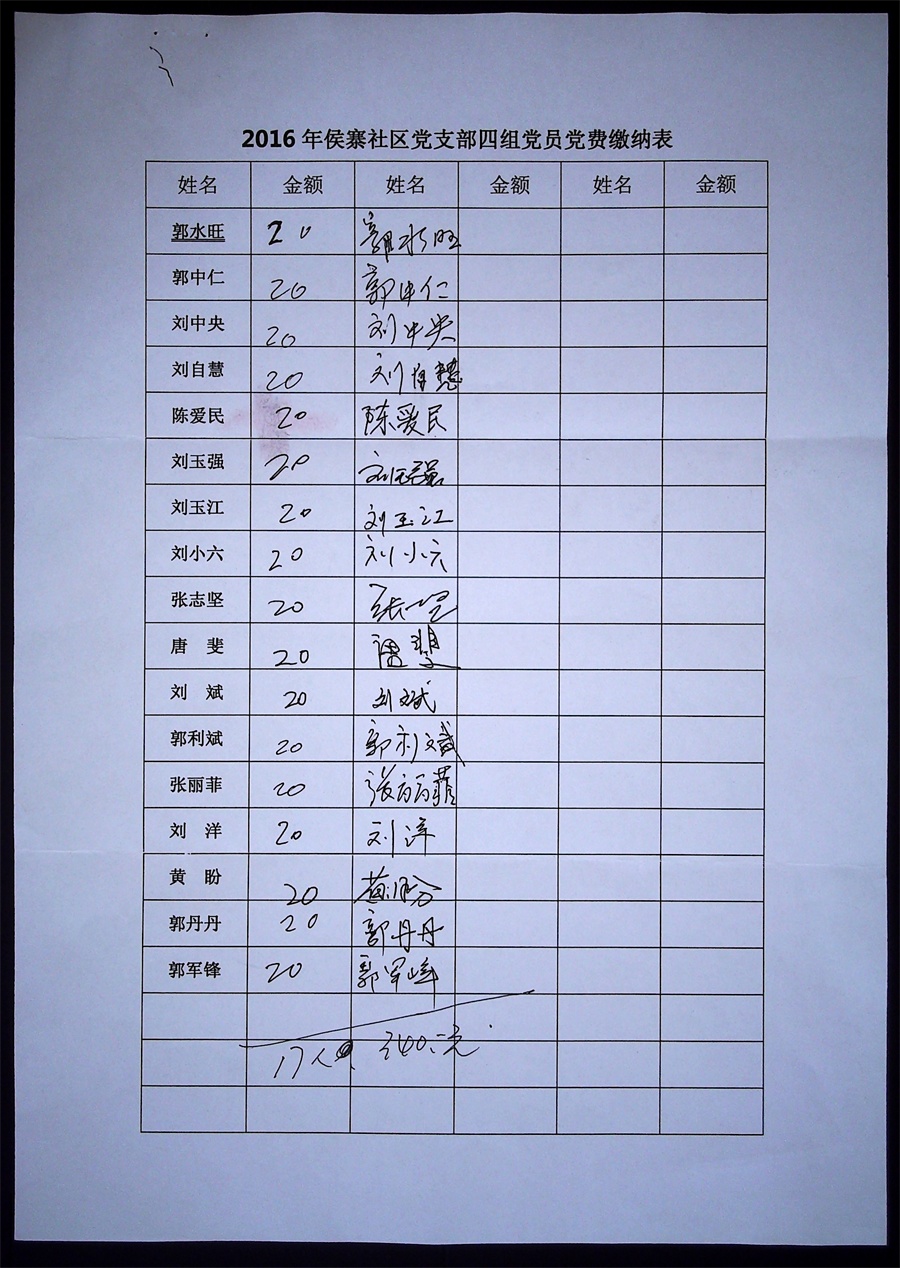 2016年侯寨社区党支部四组党员党费缴纳表
姓名 金额 姓名 金额 姓名 金额
郭水旺 20 郭水旺
郭中仁 20 郭中仁
刘中央 20 刘中央
刘自慧 20 刘自慧
陈爱民 20 陈爱民
刘玉强 20 刘玉强
刘玉江 20 刘玉江
刘小六 20 刘小六
张志坚 20 张坚
唐 斐 20 唐斐
刘 斌 20 刘斌
郭利斌 20 郭利斌
张丽菲 20 张丽菲
刘 洋 20 刘洋
黄 盼 20 黄盼
郭丹丹 20 郭丹丹
郭军锋 20 郭军峰
17人 340元